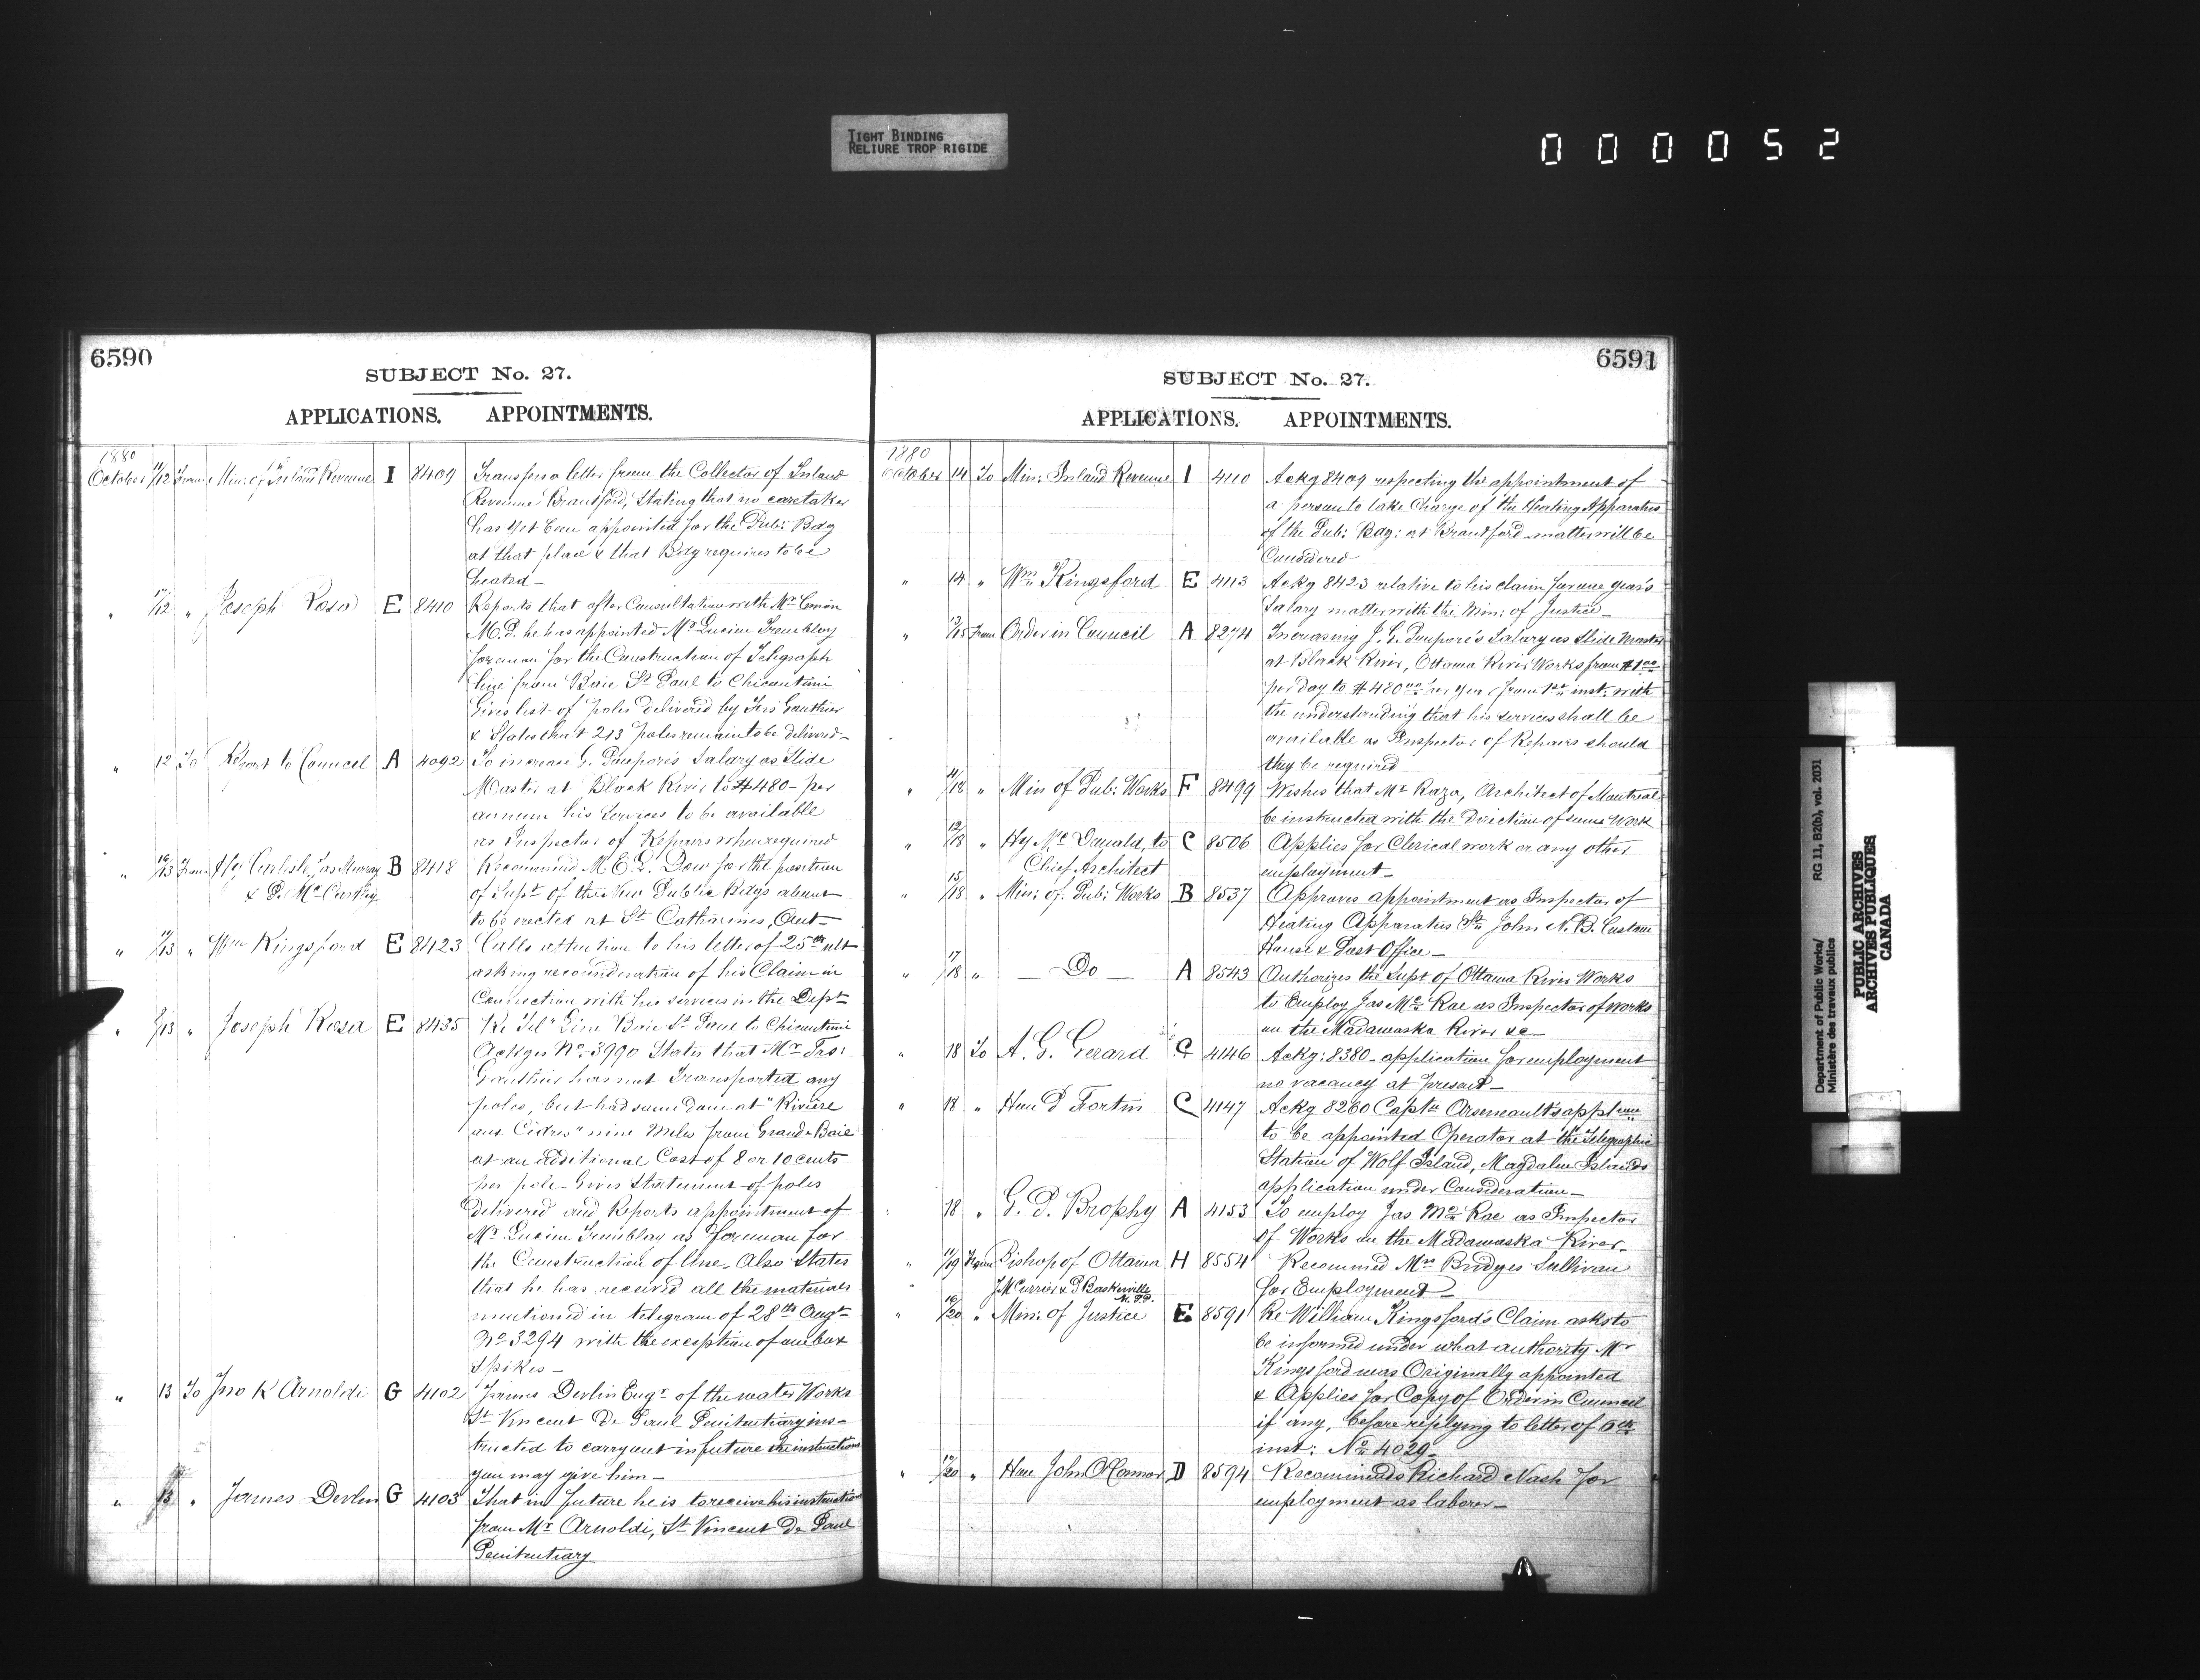 TIGHT BINDING
RELIURE TROP RIGIDE
000052
6590
SUBJECT No. 27.
APPLICATIONS. APPOINTMENTS.
1880
October 11/12 From Min: of Inland Revenue I 8409 Transfers a letter from the Collector of Inland
Revenue Brantford, Stating that no caretaker
has yet been appointed for the Pub: Bdg
at that place & that Bdg requires to be
heated —
" 11/12 " Joseph Rosa E 8410 Reports that after Consultation with Mr Cimon
M.P. he has appointed Mr Lucien Tremblay
foreman for the Construction of Telegraph
line from Baie St Paul to Chicoutimi
Gives list of poles delivered by Frs Gauthier
& States that 213 poles remain to be delivered —
" 12 To Report to Council A 4092 To increase G. Poupore's Salary as Slide
Master at Black River to $480 – per
annum his Services to be available
as Inspector of Repairs when required
" 12/13 From Hy Carlisle, Jas Murray B 8418 Recommend M. E. L. Dow for the position
& P. Mc Carthy of Supt of the New Public Bdgs about
to be erected at St Catharines, Ont —
" 12/13 " Wm Kingsford E 8423 Calls attention to his letter of 25th ult
asking reconsideration of his Claim in
Connection with his services in the Dept —
" /13 " Joseph Rosa E 8435 Re Tel: Line Baie St Paul to Chicoutimi
Ackges No 3990 States that Mr Frs:
Gauthier has not Transported any
poles, but had some done at "Riviere
aux Cedres" nine Miles from Grande Baie
at an additional Cost of 8 or 10 cents
per pole – Gives Statement of poles
delivered and Reports appointment of
Mr Lucien Tremblay as foreman for
the Construction of line. Also States
that he has received all the materials
mentioned in telegram of 28th Augt
No 3294 with the exception of one box
spikes —
" 13 To Jno R Arnoldi G 4102 James Devlin Engr of the water Works
St Vincent De Paul Penitentiary ins–
tructed to carry out in future the instructions
you may give him —
" 13 " James Devlin G 4103 That in future he is to receive his instructions
from Mr Arnoldi, St Vincent De Paul
Penitentiary
6591
SUBJECT No. 27.
APPLICATIONS. APPOINTMENTS.
1880
October 14 To Min: Inland Revenue I 4110 Ackg 8409 respecting the appointment of
a person to take Charge of the Heating Apparatus
of the Pub: Bdg: at Brantford – matter will be
Considered —
" 14 " Wm Kingsford E 4113 Ackg 8423 relative to his claim for one year's
Salary matter with the Min: of Justice —
" /15 From Order in Council A 8274 Increasing J. G. Poupore's Salary as Slide Master
at Black River, Ottawa River Works from $1.00
per day to $480.00 per year from 1st inst: with
the understanding that his services shall be
available as Inspector of Repairs should
they be required
" /18 " Min of Pub: Works F 8499 Wishes that Mr Raza, Architect of Montreal
be instructed with the Direction of some Work
" 12/18 " Hy Mc Donald, to C 8506 Applies for Clerical work or any other
Chief Architect employment —
" 15/18 " Min: of Pub: Works B 8537 Approves appointment as Inspector of
Heating Apparatus St John N. B. Custom
House & Post Office —
" 17/18 " — Do — A 8543 Authorizes the Supt of Ottawa River Works
to Employ Jas McRae as Inspector of Works
on the Madawaska River &c —
" 18 To A. G. Gerard C 4146 Ackg: 8380 – application for employment
no vacancy at present —
" 18 " Hon P Fortin C 4147 Ackg 8260 Captn Arseneault's appl'ion
to be appointed Operator at the Telegraphic
Station of Wolf Island, Magdalen Islands
application under Consideration —
" 18 " G. P. Brophy A 4153 To employ Jas McRae as Inspector
of Works on the Madawaska River —
" /19 From Bishop of Ottawa H 8554 Recommend Mrs Bridget Sullivan
J M Currier & P Baskerville M.P.P. for Employment —
" 16/20 " Min: of Justice E 8591 Re William Kingsford's Claim asks to
be informed under what authority Mr
Kingsford was Originally appointed
& Applies for Copy of Order in Council
if any, before replying to letter of 6th
inst: No 4029 —
" /20 " Hon John O'Connor D 8594 Recommends Richard Nash for
employment as laborer —
Department of Public Works/
Ministère des travaux publics
RG 11, B2(b), vol. 2031
PUBLIC ARCHIVES
ARCHIVES PUBLIQUES
CANADA